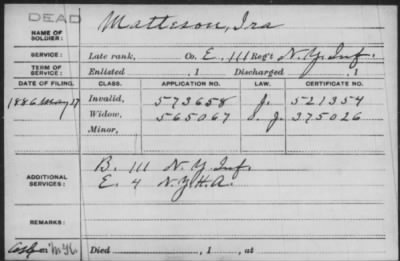 DEAD
NAME OF SOLDIER: Matteson, Ira
SERVICE: Late rank, Co. E, 111 Reg't N.Y. Inf.
TERM OF SERVICE: Enlisted , 1 Discharged , 1
DATE OF FILING. CLASS. APPLICATION NO. LAW. CERTIFICATE NO.
1886 May 27 Invalid, 573658 J. 521354
Widow, 565067 J. 375026
Minor,
ADDITIONAL SERVICES: B. 111 N.Y. Inf.
E. 4 N.Y.H.A.
REMARKS:
Died , 1 , at